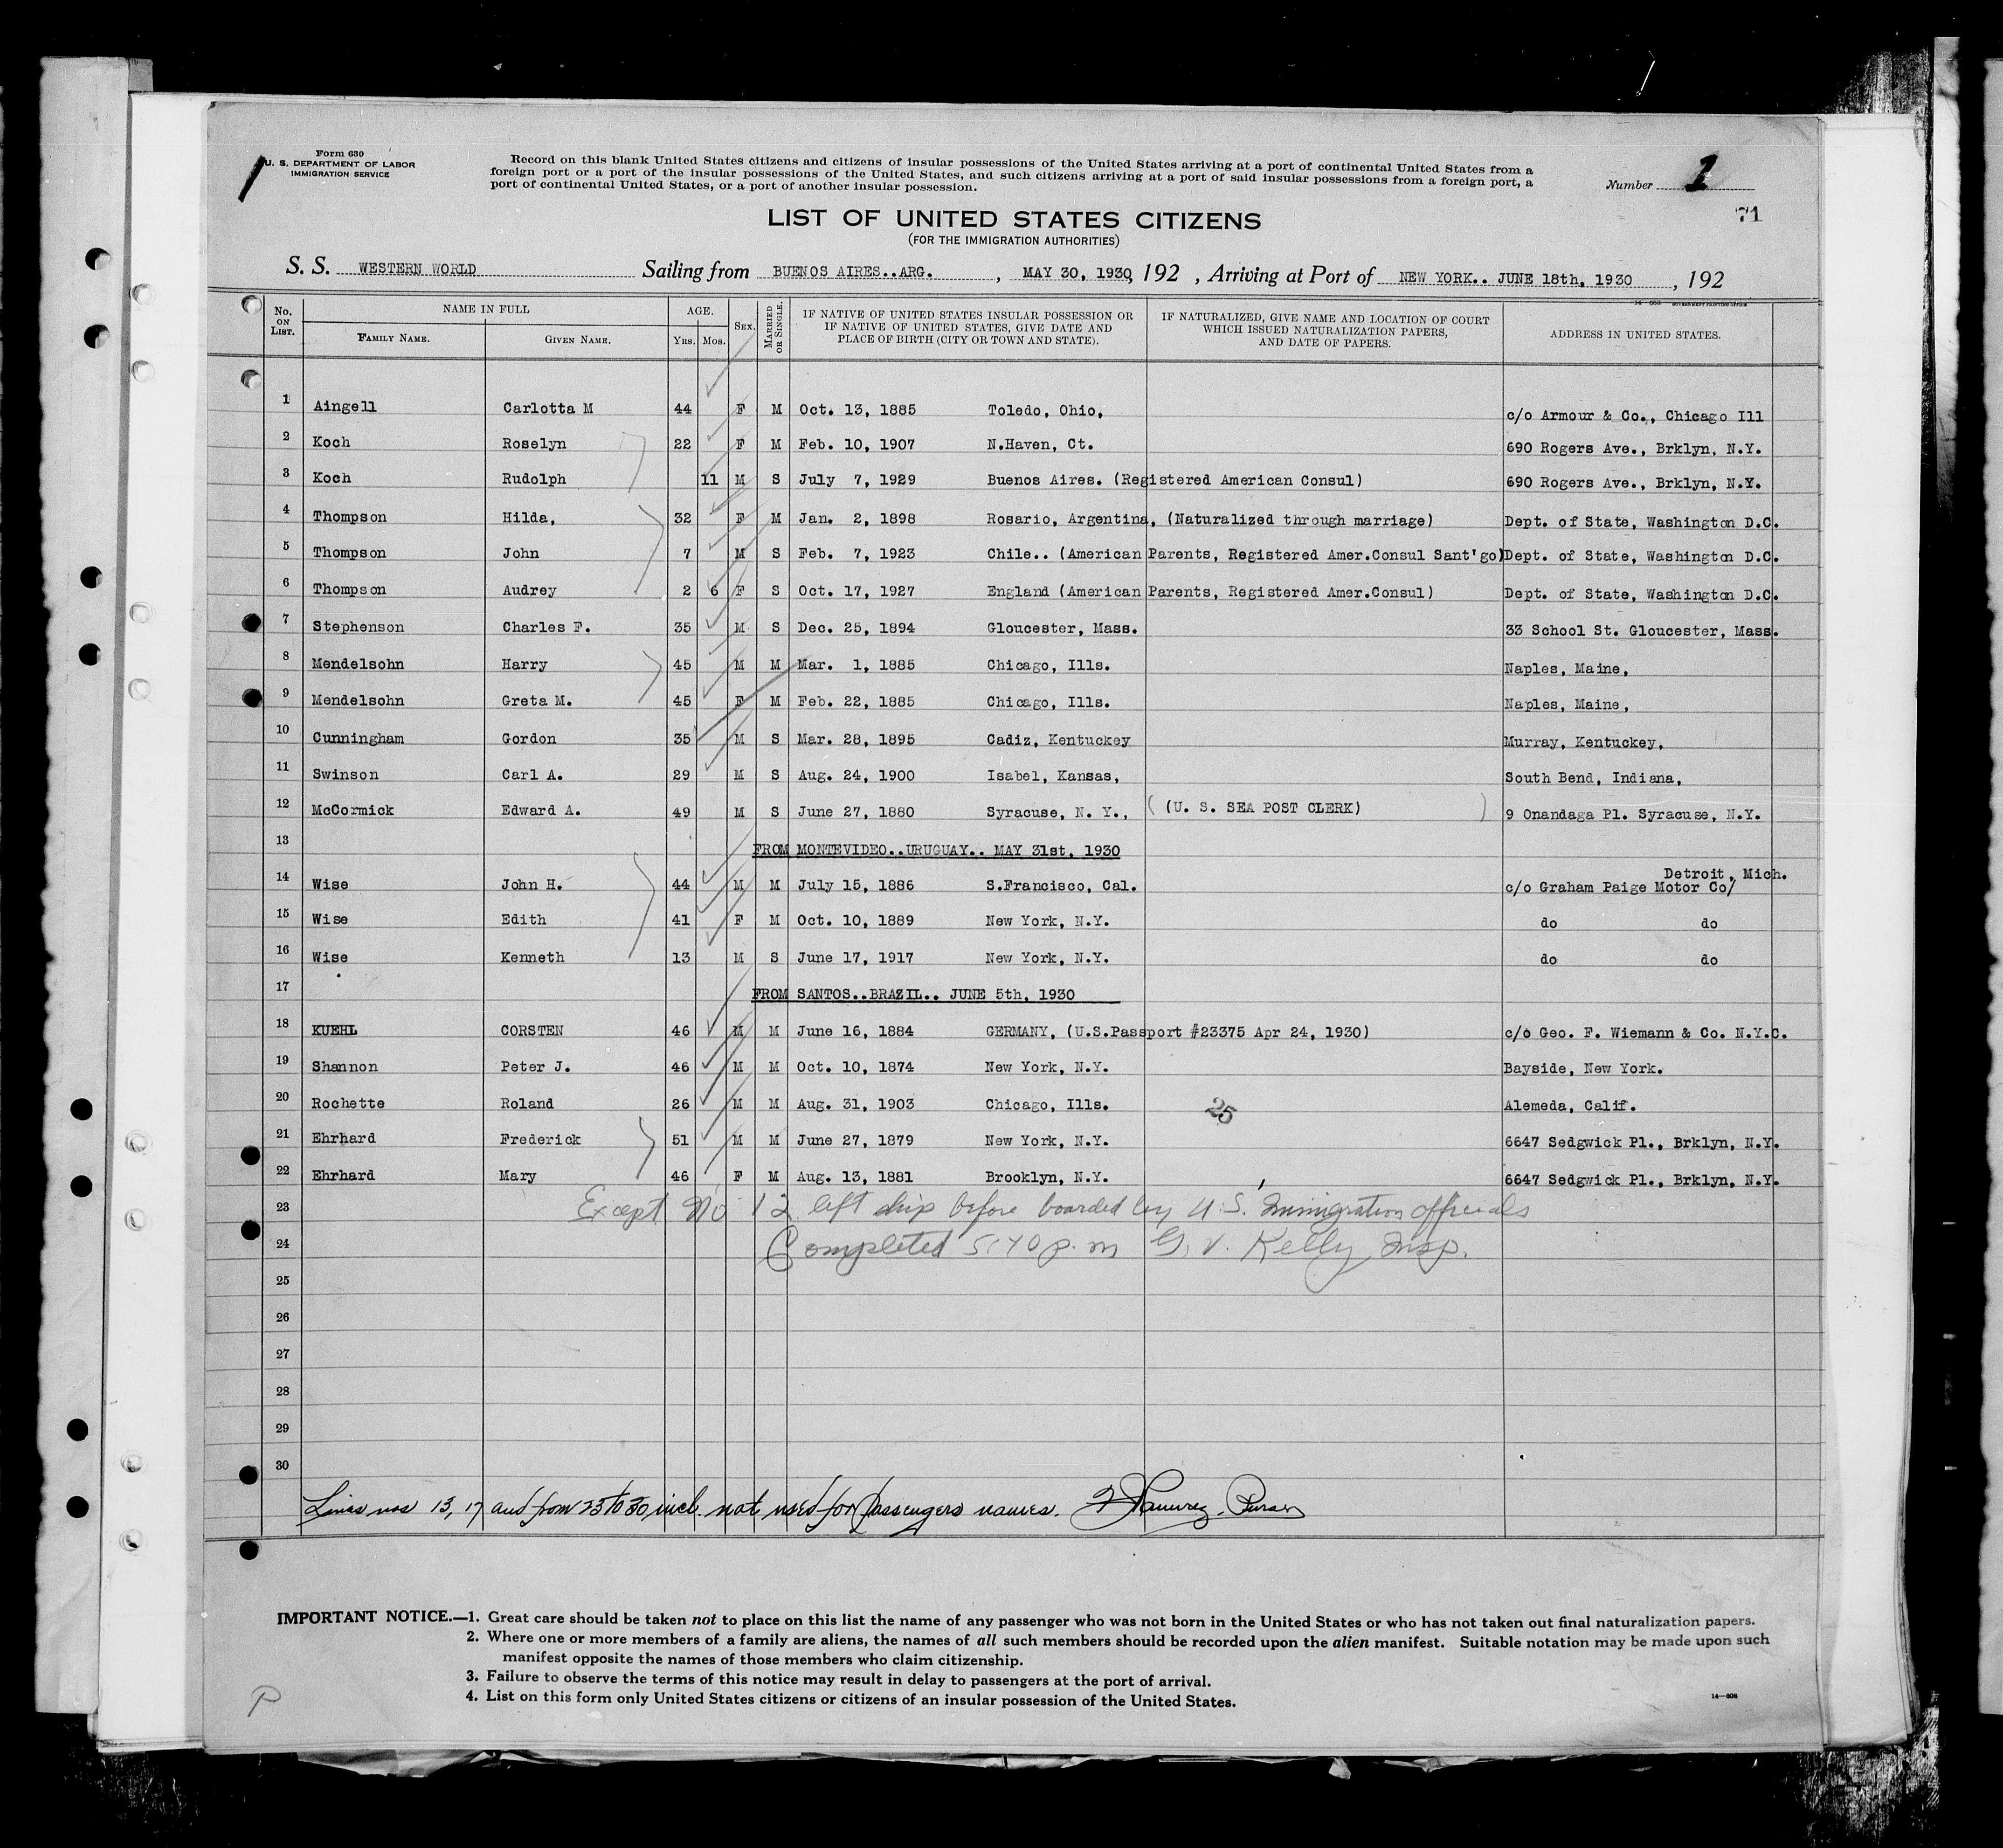 Form 630
U. S. DEPARTMENT OF LABOR
IMMIGRATION SERVICE
Record on this blank United States citizens and citizens of insular possessions of the United States arriving at a port of continental United States from a
foreign port or a port of the insular possessions of the United States, and such citizens arriving at a port of said insular possessions from a foreign port, a
port of continental United States, or a port of another insular possession.
Number 1
71
LIST OF UNITED STATES CITIZENS
(FOR THE IMMIGRATION AUTHORITIES)
S. S. WESTERN WORLD Sailing from BUENOS AIRES..ARG. , MAY 30, 1930, 192 , Arriving at Port of NEW YORK.. JUNE 18th, 1930 , 192
No. ON LIST. NAME IN FULL FAMILY NAME. GIVEN NAME. AGE. YRS. MOS. SEX. MARRIED OR SINGLE. IF NATIVE OF UNITED STATES INSULAR POSSESSION OR IF NATIVE OF UNITED STATES, GIVE DATE AND PLACE OF BIRTH (CITY OR TOWN AND STATE). IF NATURALIZED, GIVE NAME AND LOCATION OF COURT WHICH ISSUED NATURALIZATION PAPERS, AND DATE OF PAPERS. ADDRESS IN UNITED STATES.
1 Aingell Carlotta M 44 F M Oct. 13, 1885 Toledo, Ohio, c/o Armour & Co., Chicago Ill
2 Koch Roselyn 22 F M Feb. 10, 1907 N.Haven, Ct. 690 Rogers Ave., Brklyn, N.Y.
3 Koch Rudolph 11 M S July 7, 1929 Buenos Aires. (Registered American Consul) 690 Rogers Ave., Brklyn, N.Y.
4 Thompson Hilda, 32 F M Jan. 2, 1898 Rosario, Argentina, (Naturalized through marriage) Dept. of State, Washington D.C.
5 Thompson John 7 M S Feb. 7, 1923 Chile.. (American Parents, Registered Amer.Consul Sant'go) Dept. of State, Washington D.C.
6 Thompson Audrey 2 6 F S Oct. 17, 1927 England (American Parents, Registered Amer.Consul) Dept. of State, Washington D.C.
7 Stephenson Charles F. 35 M S Dec. 25, 1894 Gloucester, Mass. 33 School St. Gloucester, Mass.
8 Mendelsohn Harry 45 M M Mar. 1, 1885 Chicago, Ills. Naples, Maine,
9 Mendelsohn Greta M. 45 F M Feb. 22, 1885 Chicago, Ills. Naples, Maine,
10 Cunningham Gordon 35 M S Mar. 28, 1895 Cadiz, Kentucky Murray, Kentucky,
11 Swinson Carl A. 29 M S Aug. 24, 1900 Isabel, Kansas, South Bend, Indiana,
12 McCormick Edward A. 49 M S June 27, 1880 Syracuse, N. Y., (U. S. SEA POST CLERK) 9 Onandaga Pl. Syracuse, N.Y.
13 FROM MONTEVIDEO..URUGUAY.. MAY 31st, 1930
14 Wise John H. 44 M M July 15, 1886 S.Francisco, Cal. c/o Graham Paige Motor Co/ Detroit, Mich.
15 Wise Edith 41 F M Oct. 10, 1889 New York, N.Y. do do
16 Wise Kenneth 13 M S June 17, 1917 New York, N.Y. do do
17 FROM SANTOS..BRAZIL.. JUNE 5th, 1930
18 KUEHL CORSTEN 46 M M June 16, 1884 GERMANY, (U.S.Passport #23375 Apr 24, 1930) c/o Geo. F. Wiemann & Co. N.Y.C.
19 Shannon Peter J. 46 M M Oct. 10, 1874 New York, N.Y. Bayside, New York.
20 Rochette Roland 26 M M Aug. 31, 1903 Chicago, Ills. 25 Alemeda, Calif.
21 Ehrhard Frederick 51 M M June 27, 1879 New York, N.Y. 6647 Sedgwick Pl., Brklyn, N.Y.
22 Ehrhard Mary 46 F M Aug. 13, 1881 Brooklyn, N.Y. 6647 Sedgwick Pl., Brklyn, N.Y.
23 Except No 12 left ship before boarded by U.S. Immigration officials
24 Completed 5:40 p.m G. V. Kelly Insp.
25
26
27
28
29
30
Lines nos 13, 17 and from 23 to 30 incl. not used for passengers names. Ramirez. Purser
IMPORTANT NOTICE.—1. Great care should be taken not to place on this list the name of any passenger who was not born in the United States or who has not taken out final naturalization papers.
2. Where one or more members of a family are aliens, the names of all such members should be recorded upon the alien manifest. Suitable notation may be made upon such
manifest opposite the names of those members who claim citizenship.
3. Failure to observe the terms of this notice may result in delay to passengers at the port of arrival.
4. List on this form only United States citizens or citizens of an insular possession of the United States.
P
14—608